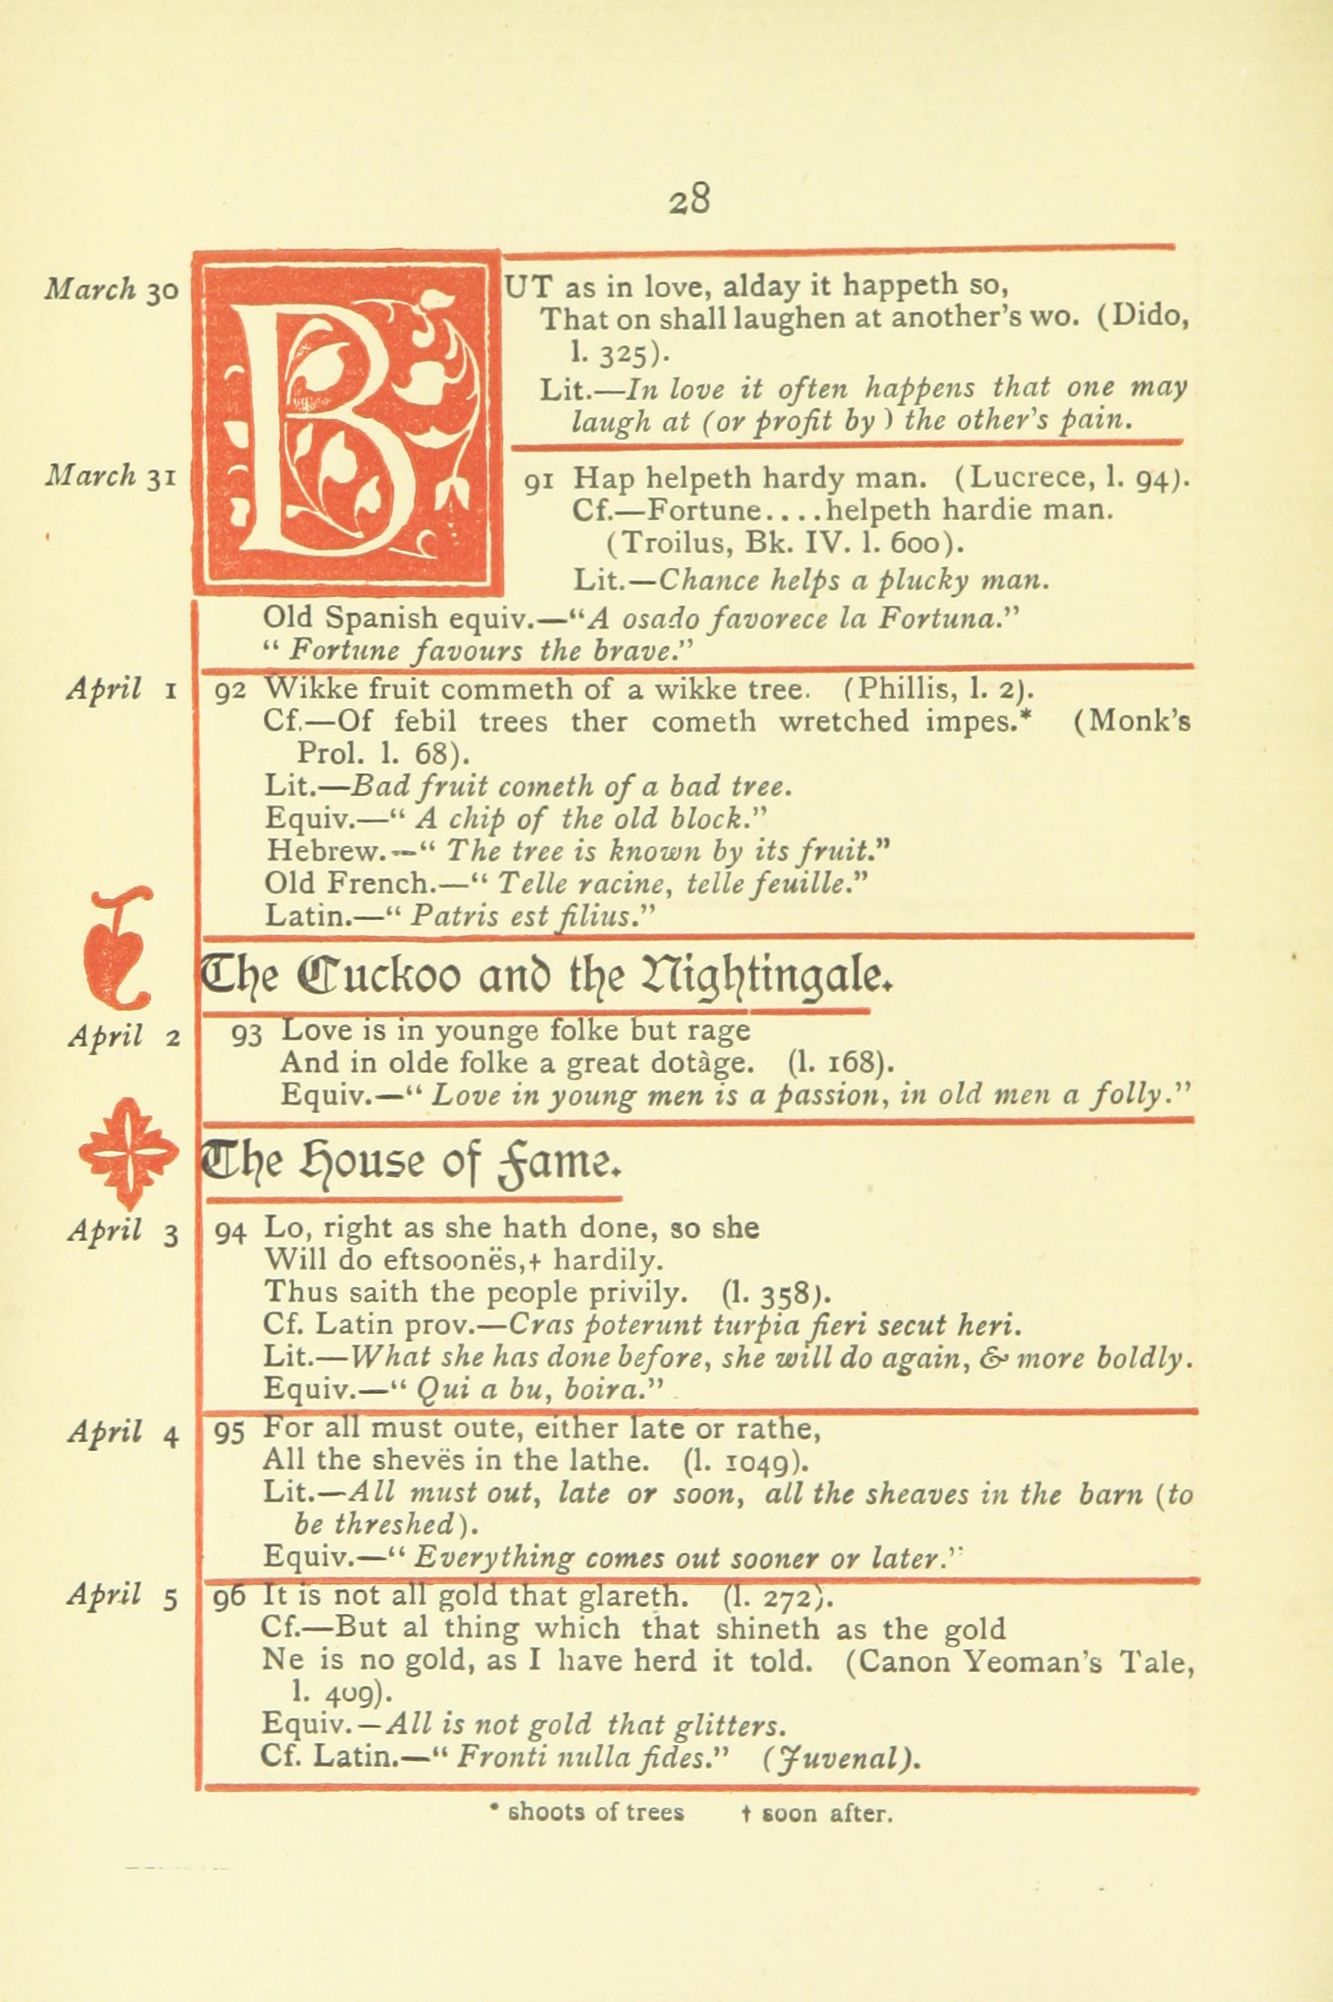 28
March 30
BUT as in love, alday it happeth so,
That on shall laughen at another's wo. (Dido,
l. 325).
Lit.—In love it often happens that one may
laugh at (or profit by) the other's pain.
March 31
91 Hap helpeth hardy man. (Lucrece, l. 94).
Cf.—Fortune....helpeth hardie man.
(Troilus, Bk. IV. l. 600).
Lit.—Chance helps a plucky man.
Old Spanish equiv.—“A osado favorece la Fortuna.”
“Fortune favours the brave.”
April 1
92 Wikke fruit commeth of a wikke tree. (Phillis, l. 2).
Cf.—Of febil trees ther cometh wretched impes.* (Monk's
Prol. l. 68).
Lit.—Bad fruit cometh of a bad tree.
Equiv.—“A chip of the old block.”
Hebrew.—“The tree is known by its fruit.”
Old French.—“Telle racine, telle feuille.”
Latin.—“Patris est filius.”
The Cuckoo and the Nightingale.
April 2
93 Love is in younge folke but rage
And in olde folke a great dotàge. (l. 168).
Equiv.—“Love in young men is a passion, in old men a folly.”
The House of Fame.
April 3
94 Lo, right as she hath done, so she
Will do eftsoonës,† hardily.
Thus saith the people privily. (l. 358).
Cf. Latin prov.—Cras poterunt turpia fieri secut heri.
Lit.—What she has done before, she will do again, & more boldly.
Equiv.—“Qui a bu, boira.”
April 4
95 For all must oute, either late or rathe,
All the shevës in the lathe. (l. 1049).
Lit.—All must out, late or soon, all the sheaves in the barn (to
be threshed).
Equiv.—“Everything comes out sooner or later.”
April 5
96 It is not all gold that glareth. (l. 272).
Cf.—But al thing which that shineth as the gold
Ne is no gold, as I have herd it told. (Canon Yeoman's Tale,
l. 409).
Equiv.—All is not gold that glitters.
Cf. Latin.—“Fronti nulla fides.” (Juvenal).
* shoots of trees † soon after.